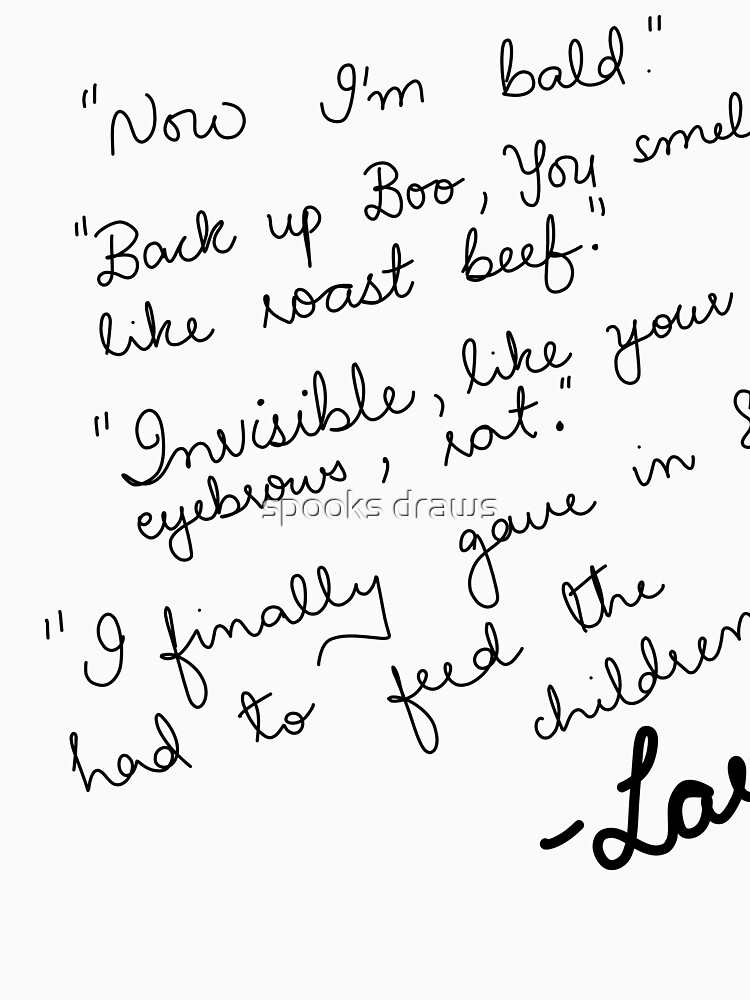 "Now I'm bald."
"Back up Boo, You smel
like roast beef."
"Invisible, like your
eyebrows, rat."
spooks draws
"I finally gave in &
had to feed the
children
-Lau